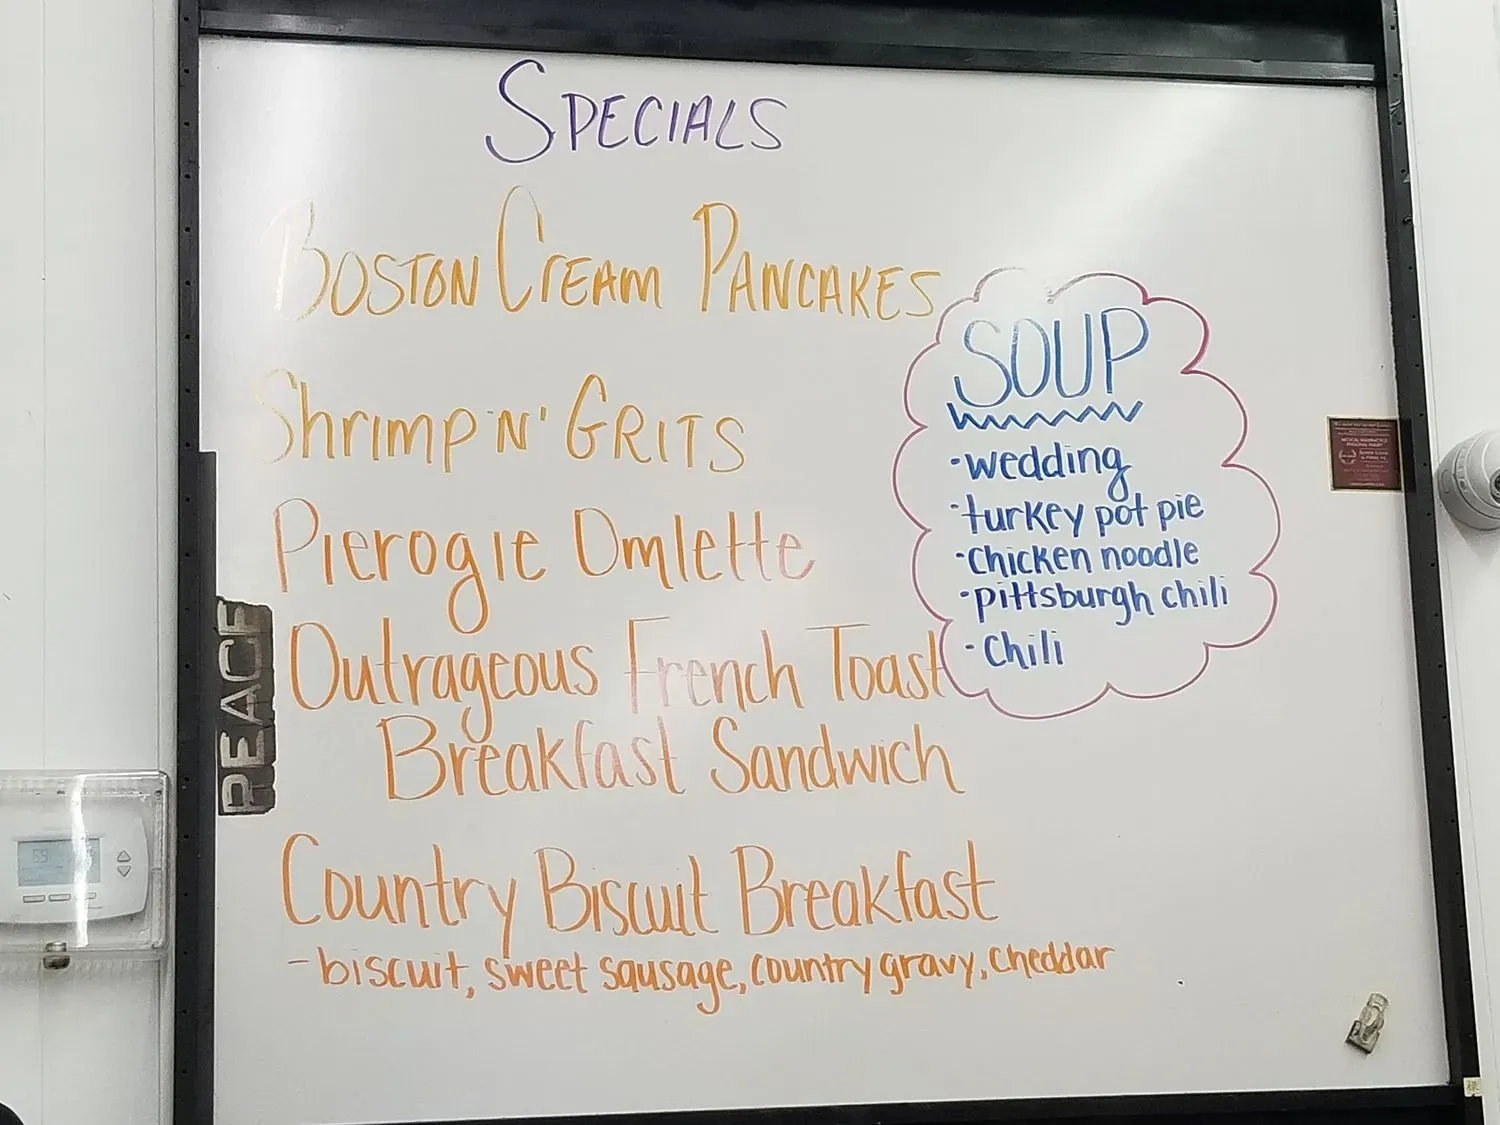 SPECIALS
BOSTON CREAM PANCAKES
Shrimp 'N' GRITS
Pierogie Omlette
Outrageous French Toast
Breakfast Sandwich
Country Biscuit Breakfast
- biscuit, sweet sausage, country gravy, cheddar
SOUP
· wedding
· turkey pot pie
· chicken noodle
· pittsburgh chili
· chili
PEACE